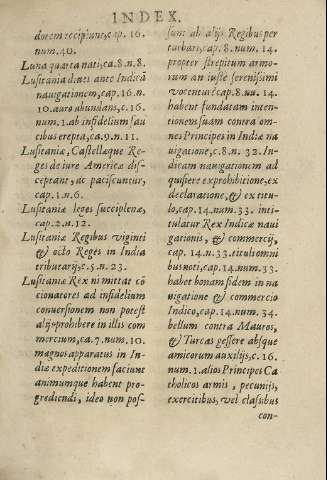 INDEX.
dorem recipiunt, cap. 16.
num. 40.
Luna quarta nati, c. 8. n. 8.
Lusitania diues ante Indicā
nauigationem, cap. 16. n.
10. auro abundans, c. 16.
num. 1. ab infidelium fau
cibus erepta, ca. 9. n. 11.
Lusitaniæ, Castellæque Re-
ges de iure Americæ dis-
ceptant, ac paciscuntur,
cap. 1. n. 6.
Lusitaniæ leges succiplenæ,
cap. 2. n. 12.
Lusitaniæ Regibus viginti
& octo Reges in India
tributarij, c. 5. n. 23.
Lusitaniæ Rex ni mittat cō
cionatores ad infidelium
conuersionem non potest
alijs prohibere in illis com
mercium, ca. 7. num. 10.
magnos apparatus in In-
diæ expeditionem faciunt
animumque habent pro-
grediendi, ideo non pos-
sunt ab alijs Regibus per
turbari, cap. 8. num. 14.
propter strepitum armo-
rum an iuste serenissimi
vocentur? cap. 8. nu. 14.
habent fundatam inten-
tionem suam contra om-
nes Principes in Indiæ na
uigatione, c. 8. n. 32. In-
dicam nauigationem ad
quisiere ex prohibitione, ex
declaratione, & ex titu-
lo, cap. 14. num. 33. inti-
tulatur Rex Indicæ naui
gationis, & commercij,
cap. 14. n. 33. tituli omni
bus noti, cap. 14. num. 33.
habet bonam fidem in na
uigatione & commercio
Indico, cap. 14. num. 34.
bellum contra Mauros,
& Turcas gessere absque
amicorum auxilijs, c. 16.
num. 1. alios Principes Ca
tholicos armis, pecunijs,
exercitibus, vel classibus
con-